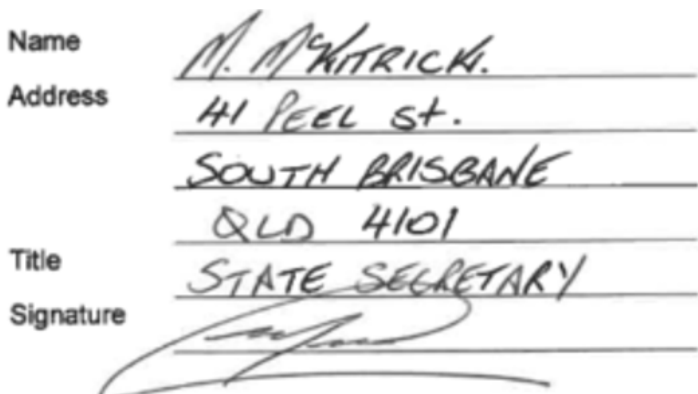 Name M. McKITRICK.
Address 41 PEEL St.
SOUTH BRISBANE
QLD 4101
Title STATE SECRETARY
Signature